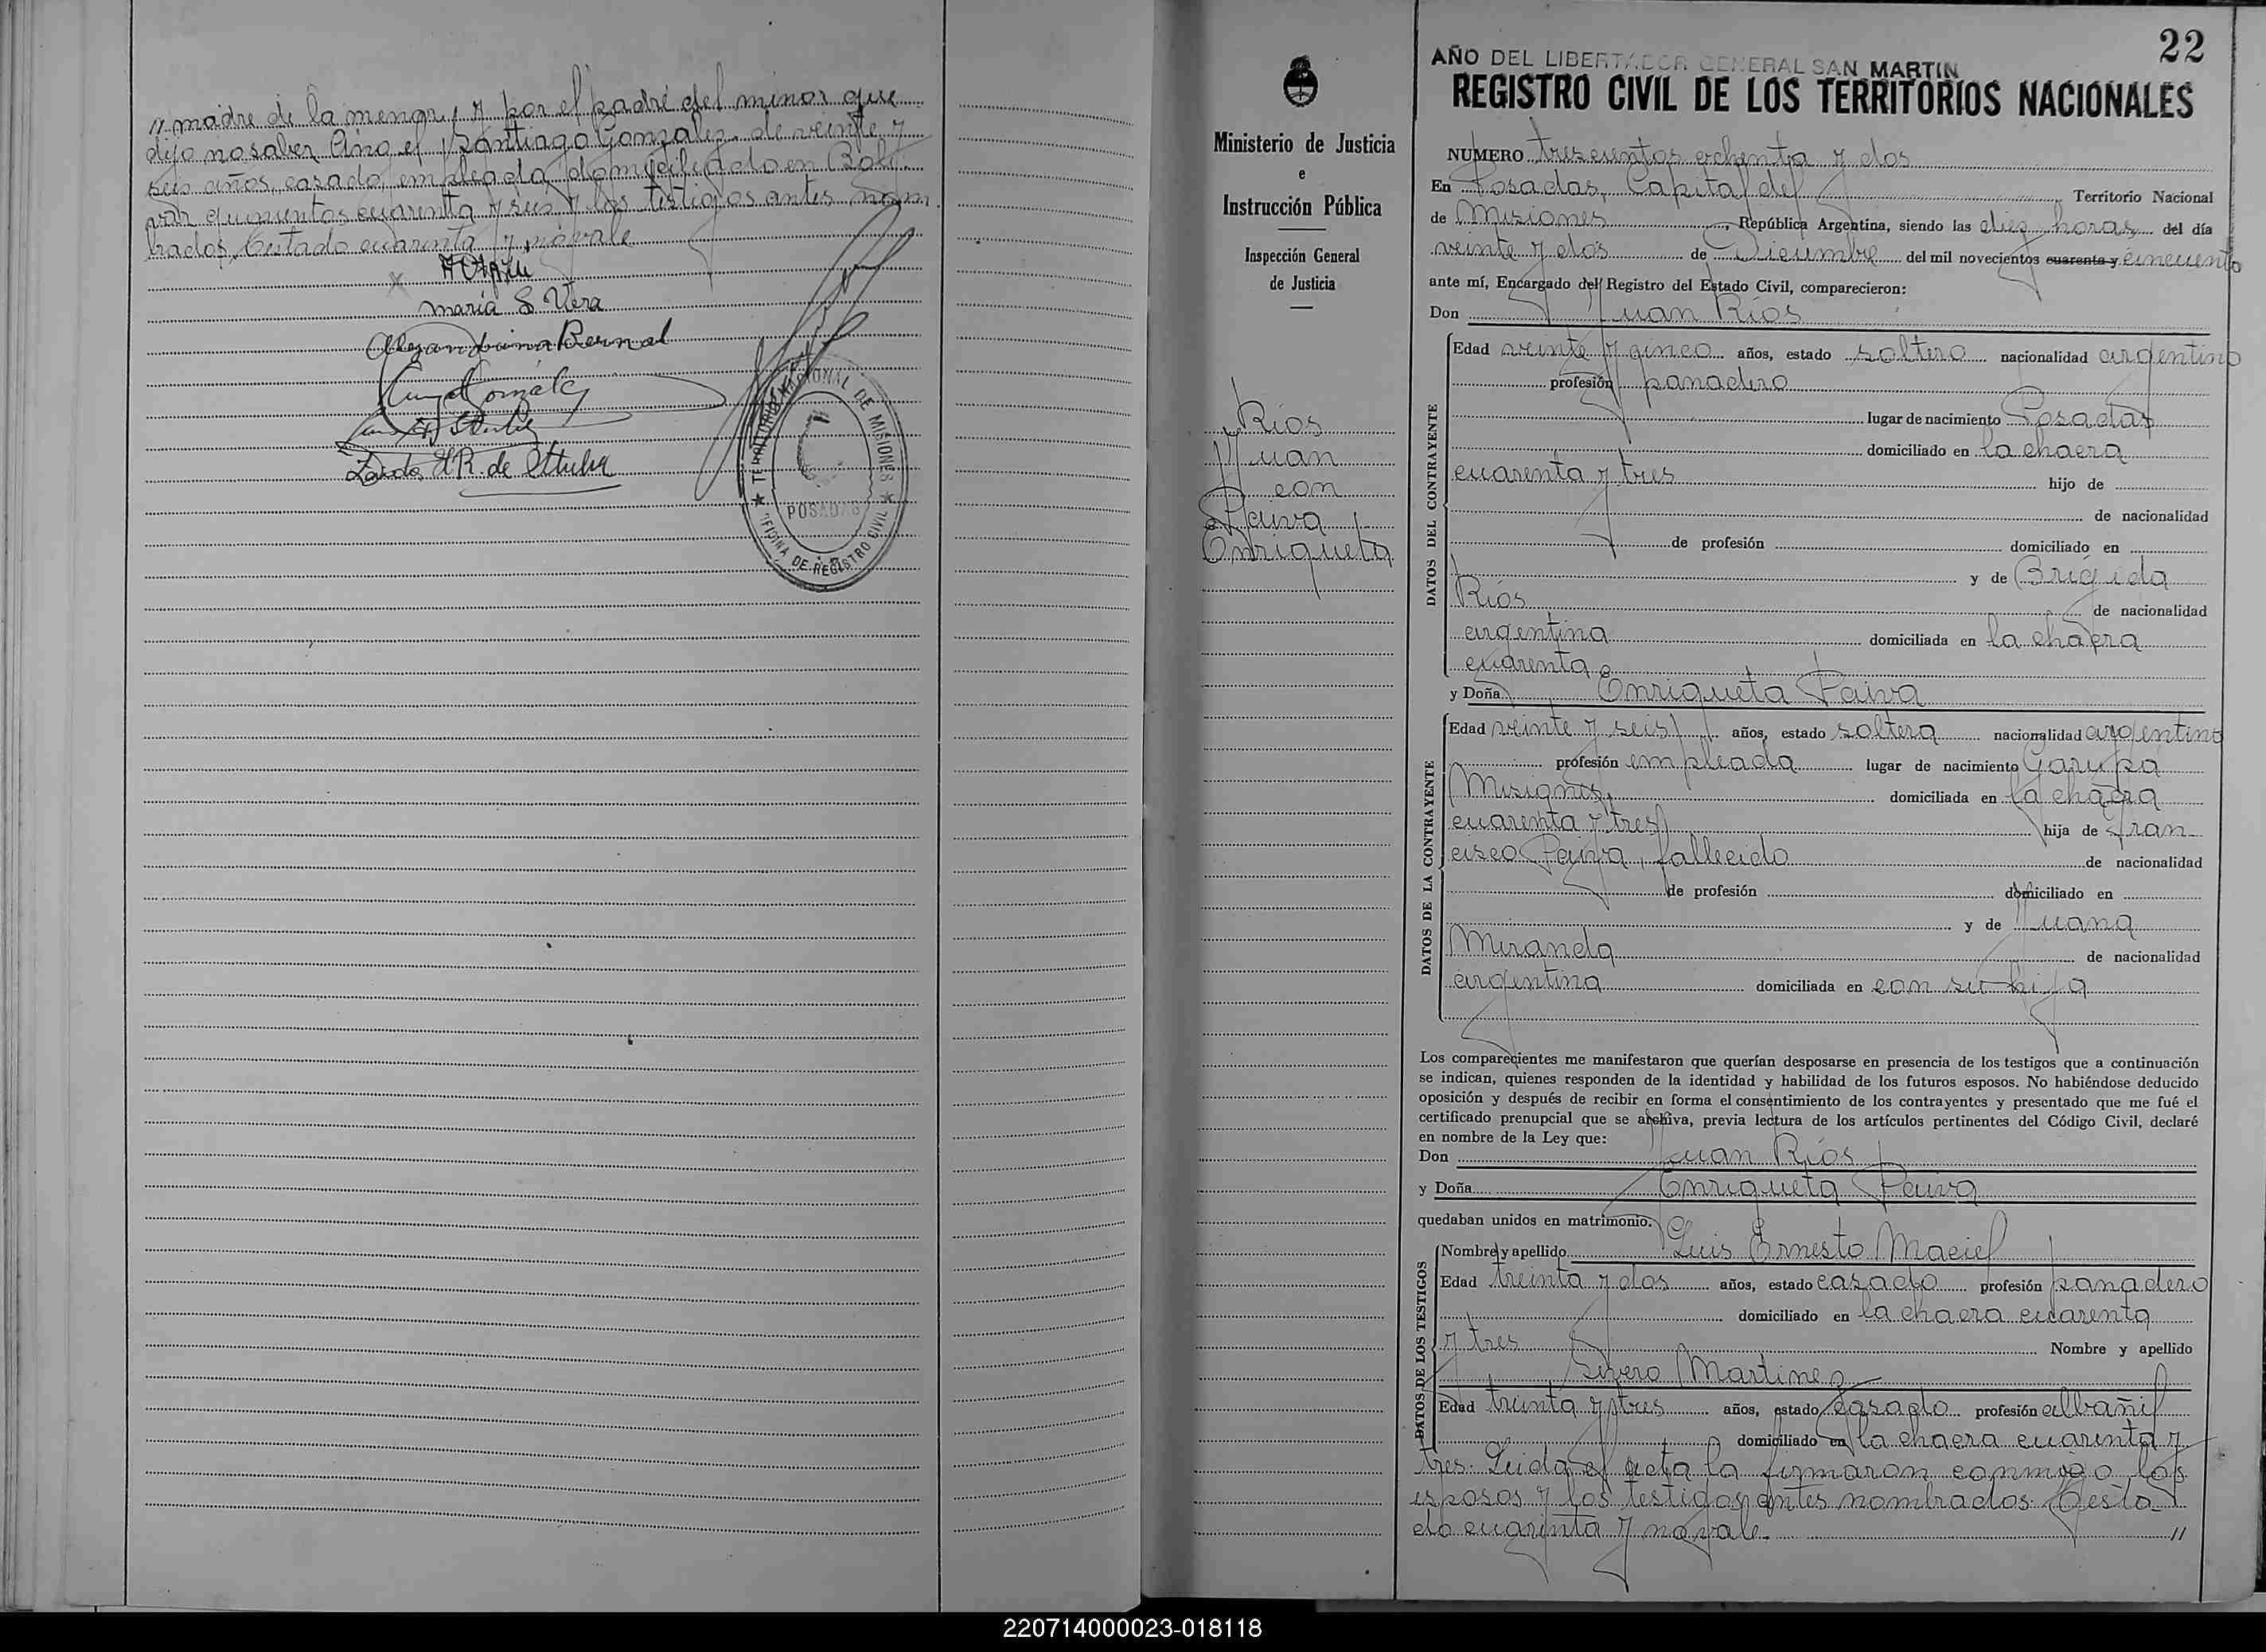 " madre de la menor, y por el padre del menor que
dijo no saber lo hizo el Santiago Gonzalez, de veinte y
seis años, casado, empleado, domiciliado en Bolí-
var quinientos cuarenta y seis y los testigos antes nom-
brados. Testado cuarenta y, no vale
maría S. Vera
Alejandrina Bernal
González
E.R. de
TERRITORIO NACIONAL DE MISIONES
POSADAS
OFICINA DE REGISTRO CIVIL
22
AÑO DEL LIBERTADOR GENERAL SAN MARTIN
REGISTRO CIVIL DE LOS TERRITORIOS NACIONALES
Ministerio de Justicia
e
Instrucción Pública
Inspección General
de Justicia
Ríos
Juan
con
Paiva
Enriqueta
NUMERO trescientos ochenta y dos
En Posadas, Capital del Territorio Nacional
de Misiones, República Argentina, siendo las diez horas del día
veinte y dos de Diciembre del mil novecientos cuarenta y cincuenta
ante mí, Encargado del Registro del Estado Civil, comparecieron:
Don Juan Ríos
DATOS DEL CONTRAYENTE
Edad veinte y cinco años, estado soltero nacionalidad argentino
profesión panadero
lugar de nacimiento Posadas
domiciliado en la chacra
cuarenta y tres hijo de
de nacionalidad
de profesión domiciliado en
y de Brígida
Ríos de nacionalidad
argentina domiciliada en la chacra
cuarenta
y Doña Enriqueta Paiva
DATOS DE LA CONTRAYENTE
Edad veinte y seis años, estado soltera nacionalidad argentina
profesión empleada lugar de nacimiento Garupa
Misiones, domiciliada en la chacra
cuarenta y tres hija de Fran-
cisco Paiva, fallecido de nacionalidad
de profesión domiciliado en
y de Juana
Miranda de nacionalidad
argentina domiciliada en con su hija
Los comparecientes me manifestaron que querían desposarse en presencia de los testigos que a continuación
se indican, quienes responden de la identidad y habilidad de los futuros esposos. No habiéndose deducido
oposición y después de recibir en forma el consentimiento de los contrayentes y presentado que me fué el
certificado prenupcial que se archiva, previa lectura de los artículos pertinentes del Código Civil, declaré
en nombre de la Ley que:
Don Juan Ríos
y Doña Enriqueta Paiva
quedaban unidos en matrimonio.
DATOS DE LOS TESTIGOS
Nombre y apellido Luis Ernesto Maciel
Edad treinta y dos años, estado casado profesión panadero
domiciliado en la chacra cuarenta
y tres Nombre y apellido
Martinez
Edad treinta y tres años, estado casado profesión albañil
domiciliado en la chacra cuarenta y
tres. Leida el acta la firmaron conmigo, los
esposos y los testigos antes nombrados. Testa-
do cuarenta y no vale. "
220714000023-018118